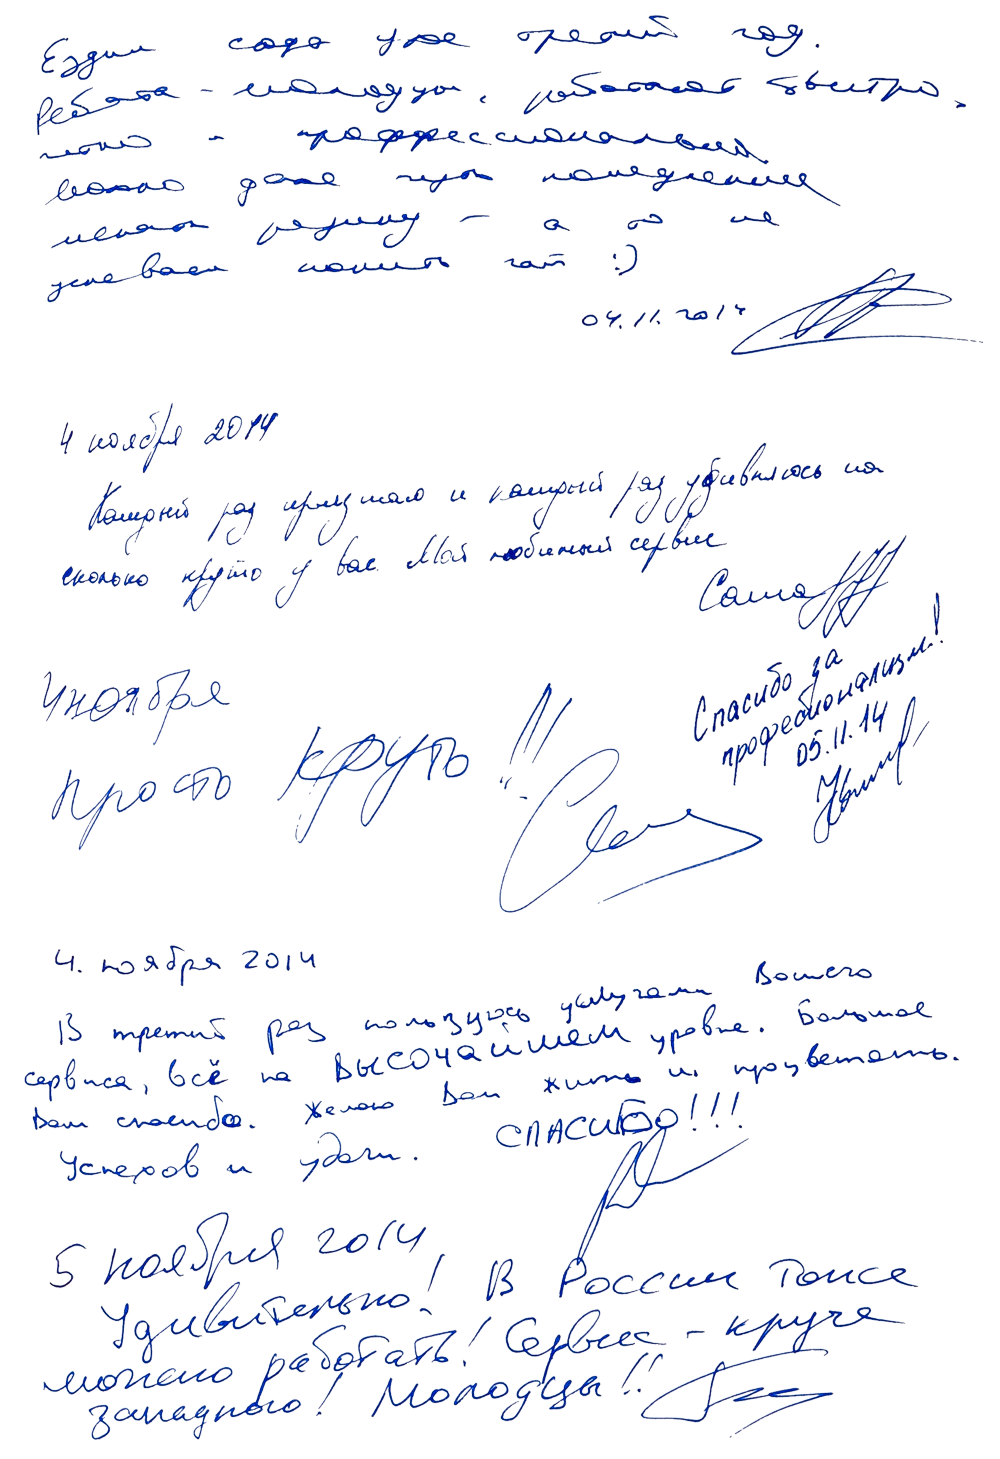 Ездим сюда уже третий год.
Ребята - молодцы, работают быстро,
чётко - профессионально
можно даже через понедельник
менять резину - а то не
успеваем попить чай :)
04.11.2014
4 ноября 2014
Каждый раз приезжаю и каждый раз удивляюсь на
сколько круто у вас Мой любимый сервис
Саша
4 ноября
просто круто!!!
Спасибо за
професионализм!
05.11.14
4. ноября 2014
В третий раз пользуюсь услугами Вашего
сервиса, всё на ВЫСОЧАЙШЕМ уровне. Большое
Вам спасибо. Желаю Вам жить и процветать.
Успехов и удачи. СПАСИБО!!!
5 ноября 2014
Удивительно! В России тоже
можно работать! Сервис - круче
западного! Молодцы!!